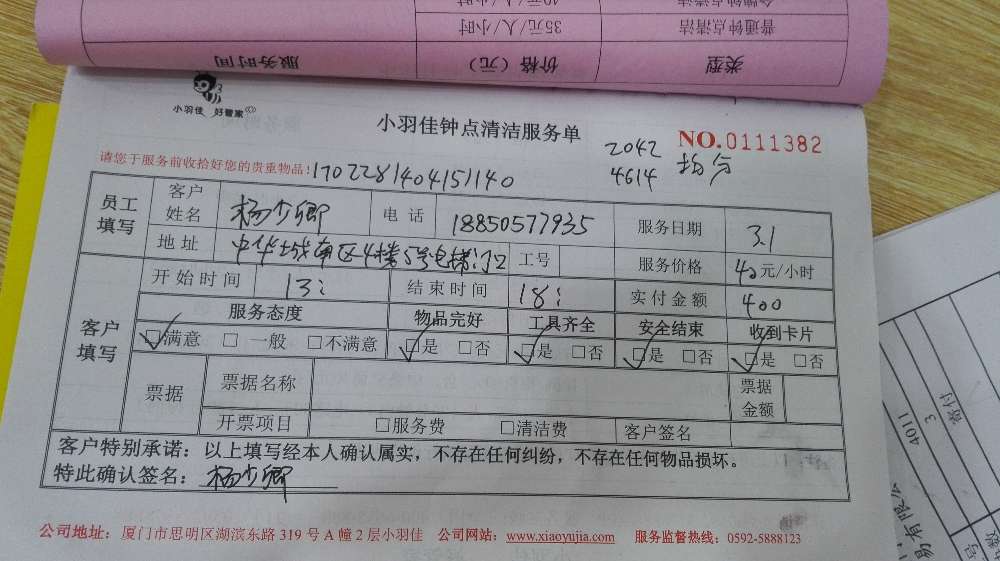 金牌钟点清洁 40元/人/小时
普通钟点清洁 35元/人/小时
类型 价格（元） 服务时间
小羽佳 好管家
小羽佳钟点清洁服务单
NO.0111382
2042
4614 均分
请您于服务前收拾好您的贵重物品! 1702281404151140
员工填写 客户姓名 杨少卿 电话 18850577935 服务日期 3.1
地址 中华城南区4楼5号电梯门口 工号 服务价格 40元/小时
客户填写 开始时间 13: 结束时间 18: 实付金额 400
服务态度 物品完好 工具齐全 安全结束 收到卡片
☑满意 □一般 □不满意 ☑是 □否 ☑是 □否 ☑是 □否 ☑是 □否
票据 票据名称 票据金额
开票项目 □服务费 □清洁费 客户签名
客户特别承诺：以上填写经本人确认属实，不存在任何纠纷，不存在任何物品损坏。
特此确认签名：杨少卿
公司地址：厦门市思明区湖滨东路319号A幢2层小羽佳 公司网站：www.xiaoyujia.com 服务监督热线：0592-5888123
4011
3
寄付